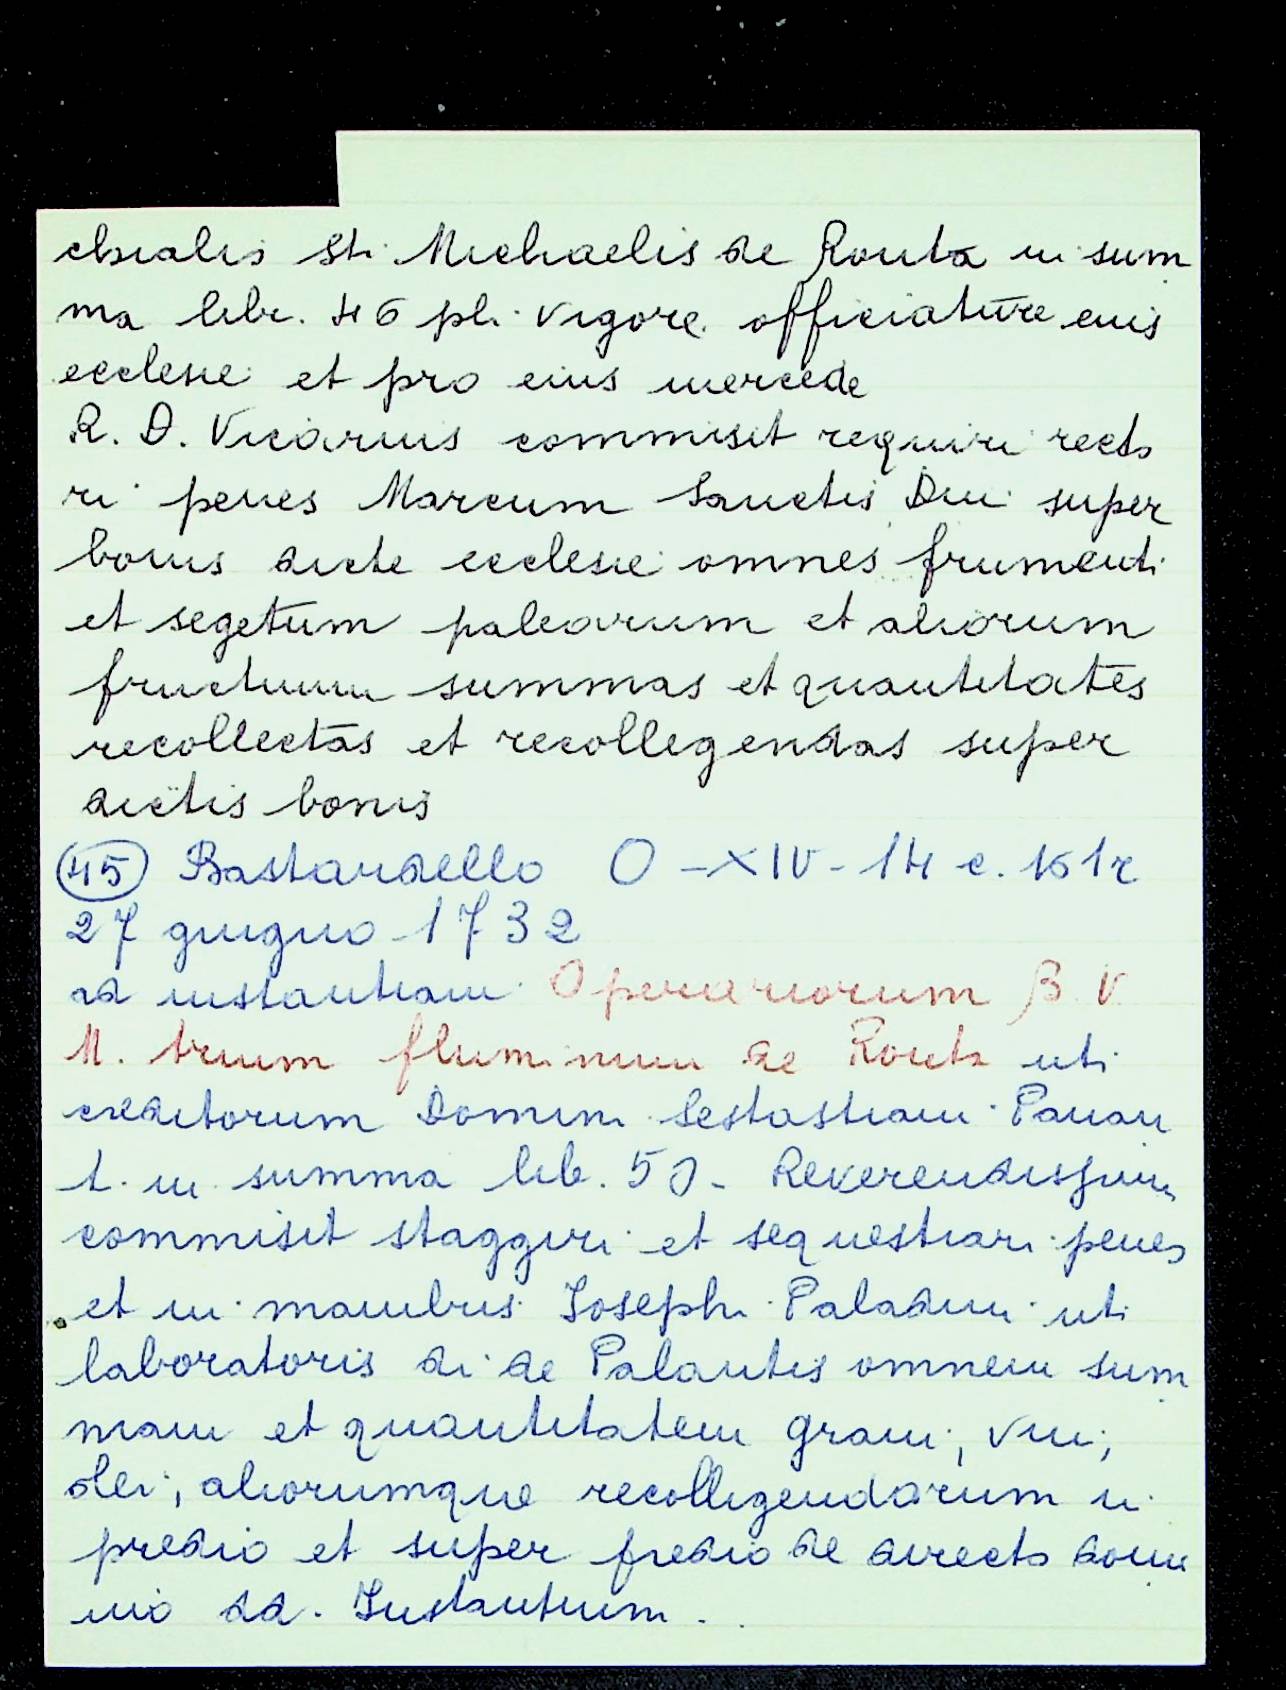 chialis Sti Michaelis de Ronta in sum
ma libr. 46 pli vigore officiature euis
ecclesie et pro eius mercede
R. D. Vicarius commisit requiri recto
ri penes Marcum Sanctis Dni super
bonis dicte ecclesie omnes frumenti
et segetum palearum et aliorum
fructuum summas et quantitates
recollectas et recollegendas super
dictis bonis
45 Bastardello O - XIV - 14 c. 161r
27 giugno 1732
ad instantiam Operariorum B. V.
M. trium fluminum de Ronta uti
creditorum Domini Sestastiani Panan
t. in summa lib. 50 -
commisit staggiri et sequestrari penes
et in manibus Joseph Paladini uti
laboratoris di de Palantis omnem sum
mam et quantitatem grani, vini,
olei, aliorumque recolligendarum in
predio et super predio de directo domi
nio dd. Instantium.